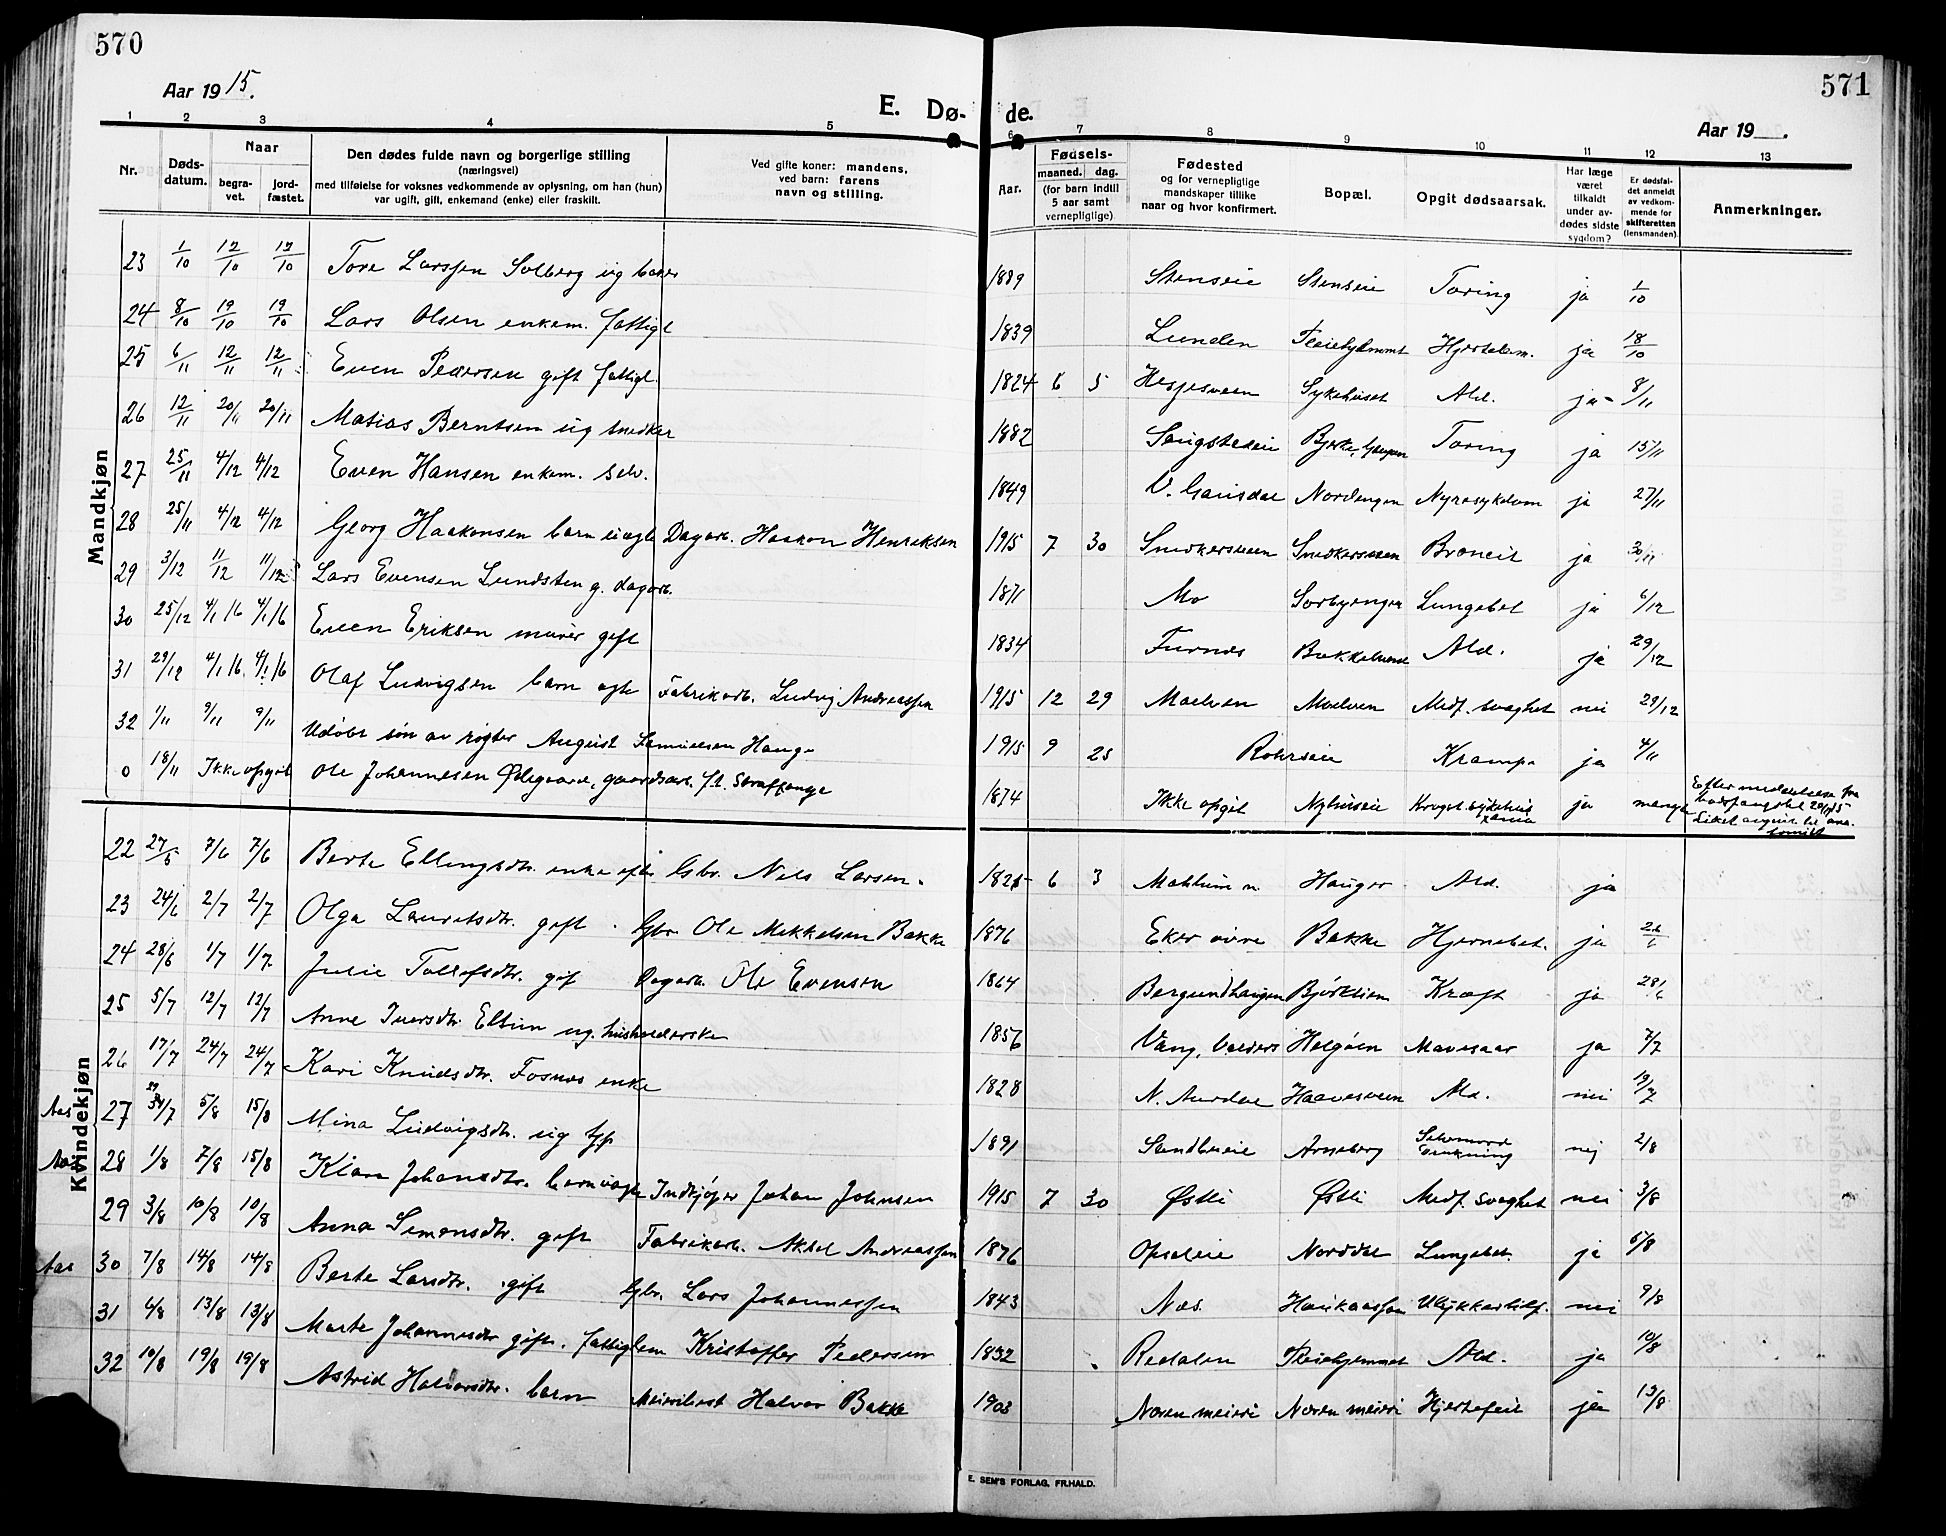 570
571
Aar 1915.
E. Dø-
de.
Aar 19 .
1 2 3 4 5 6 7 8 9 10 11 12 13
Nr.
Døds-
datum.
Naar
begra-
vet.
jord-
fæstet.
Den dødes fulde navn og borgerlige stilling
(næringsvei)
med tilføielse for voksnes vedkommende av oplysning, om han (hun)
var ugift, gift, enkemand (enke) eller fraskilt.
Ved gifte koner: mandens,
ved barn: farens
navn og stilling.
Aar.
Fødsels-
maaned. dag.
(for barn indtil
5 aar samt
vernepligtige)
Fødested
og for vernepligtige
mandskaper tillike
naar og hvor konfirmert.
Bopæl.
Opgit dødsaarsak.
Har læge
været
tilkaldt
under av-
dødes sidste
sygdom?
Er dødsfal-
det anmeldt
av vedkom-
mende for
skifteretten
(lensmanden).
Anmerkninger.
Mandkjøn
23 1/10 12/10 12/10 Tore Larssen Solberg ug 1889 Stenseie Stenseie Tæring ja 1/10
24 8/10 19/10 19/10 Lars Olsen enkem. fattigl 1839 Lunden Pleiehjemmet ja 18/10
25 6/11 12/11 12/11 Even Pedersen gift fattigl. 1824 6 5 Hesjesveen Sykehuset Ald. ja 8/11
26 12/11 20/11 20/11 Matias Berntsen ug snedker 1882 Bjerke, Tæring ja 15/11
27 25/11 4/12 4/12 Even Hansen enkem. selv. 1849 V. Gausdal Nordengen ja 27/11
28 25/11 4/12 4/12 Georg Haakonsen barn uægte Dagarb. Haakon Henriksen 1915 7 30 Snekkersveen Snekkersveen Broncit ja 30/11
29 3/12 11/12 11/12 Lars Evensen Lundsten g. dagarb. 1871 Mo Lungebet ja 6/12
30 25/12 4/1 16 4/1 16 Even Eriksen murer gift 1834 Furnes Bakkelund Ald. ja 29/12
31 29/12 4/1 16. 4/1 16 Olaf Ludvigsen barn egte Fabrikarb. Ludvig Andreassen 1915 12 29 Moelven Moelven Medf. svaghet nei 29/12
32 1/11 9/11 9/11 Udøbt søn av røgter August Samuelsen Hauge 1915 9 25 Rohrseie Krampe ja 4/11
0 18/11 Ikke opgit Ole Johannesen Ødegaard, gaardsarb. f.t. Straffange 1874 Ikke opgit Nyhuseie ja
Efter meddelelse fra
Kvindekjøn
22 27/5 7/6 7/6 Berte Ellingsdtr. enke efter Gbr. Nils Larsen. 1825 6 3 Hauger Ald. ja
23 24/6 2/7 2/7 Olga Lauritsdtr. gift Gbr. Ole Mikkelsen Bakke 1876 Eker øvre Bakke Hjernebet. ja 26/6
24 28/6 1/7 1/7. Julie Tollefsdtr. gif Dagarb. Ole Evensen 1864 Berglundhaugen Bjørklien Kræft ja 28/6
25 5/7 12/7 12/7 Anne Iversdtr Eltun ug. husholderske 1856 Vang, Valdres Helgøen Mavesaar ja 7/7
26 17/7 24/7 24/7 Kari Knudsdtr. Fosnes enke 1828 N. Aurdal Haavesveen Ald. nei 19/7
Aas 27 5/8 15/8 Mina Ludvigsdtr. ug tjp 1891 Sandbueie Arneberg Selvmord drukning nej 2/8
Aas 28 1/8 7/8 15/8 Klara Johansdtr. barn uægte Indkjøper Johan Johnsen 1915 7 30 Østli Østli Medf. svaghet nei 3/8
29 3/8 10/8 10/8 Anna Simensdtr. gift Fabrikarb. Aksel Andreassen 1876 Opsaleie Norddal Lungebet. ja 5/8
Aas 30 7/8 14/8 14/8 Berte Larsdtr. gift Gbr. Lars Johannessen 1843 Næs. Haukaassen Ulykkestilf. nei 9/8
31 6/8 13/8 13/8 Marte Johannesdtr gift. fattiglem Kristoffer Pedersen 1832 Redalen Pleiehjemmet Ald. ja 10/8
32 10/8 19/8 19/8 Astrid Halvorsdtr. barn Meieribest Halvor Bakke 1903 Næren meieri Næren meieri Hjertefeil ja 13/8
E. SEM'S FORLAG, FR.HALD.